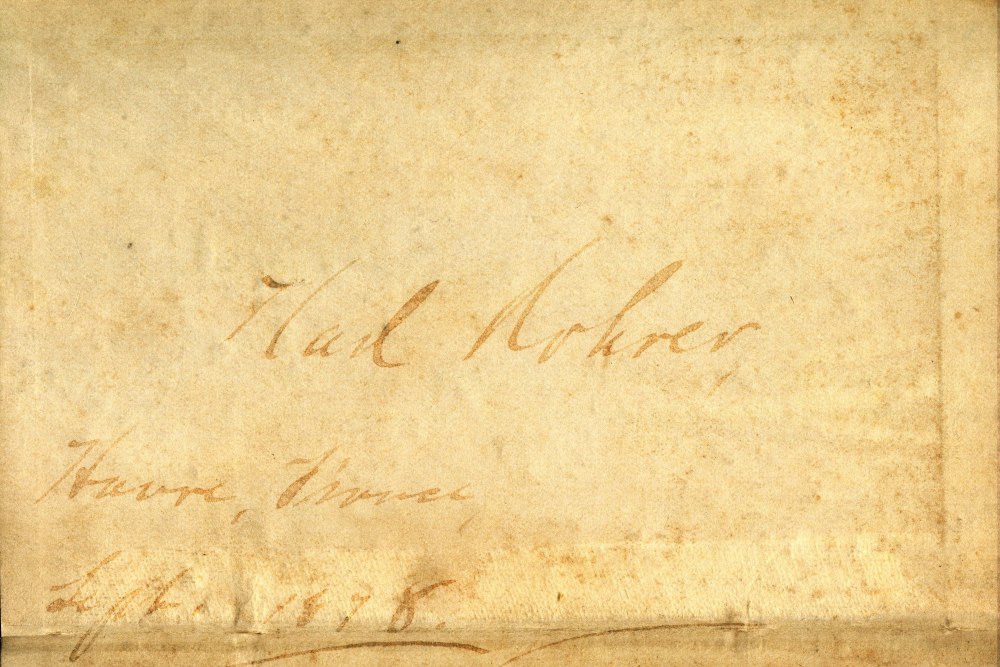 Karl Rohrer
Havre, France,
Sept. 1878.